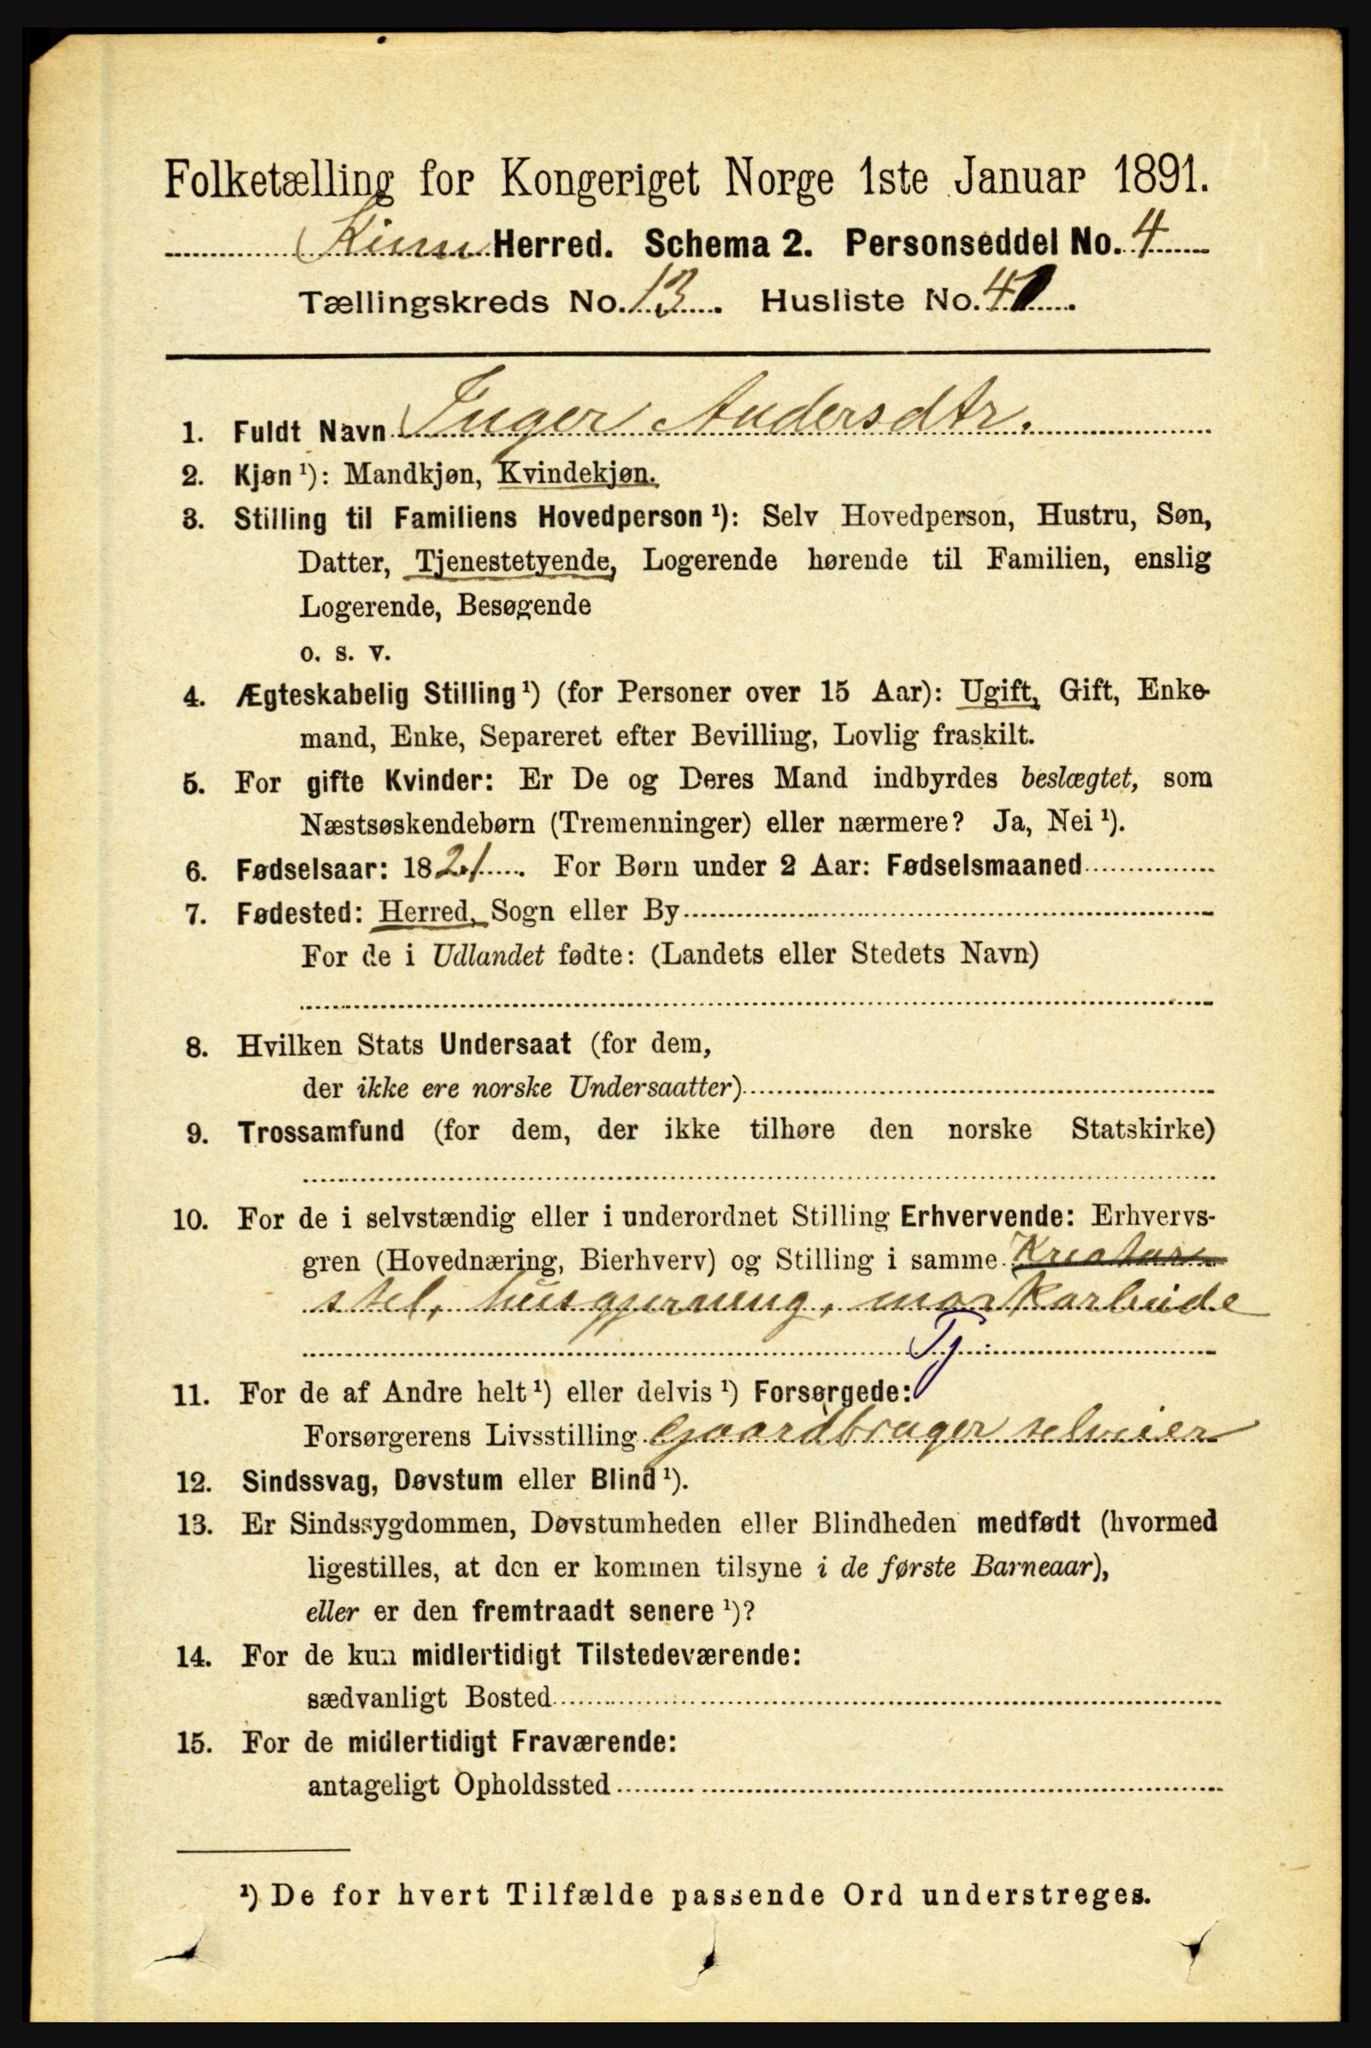 Folketælling for Kongeriget Norge 1ste Januar 1891.
Kinn Herred. Schema 2. Personseddel No. 4
Tællingskreds No. 13. Husliste No. 40.
1. Fuldt Navn Inger Andersdtr.
2. Kjøn ¹): Mandkjøn, Kvindekjøn.
3. Stilling til Familiens Hovedperson ¹): Selv Hovedperson, Hustru, Søn,
Datter, Tjenestetyende, Logerende hørende til Familien, enslig
Logerende, Besøgende
o. s. v.
4. Ægteskabelig Stilling ¹) (for Personer over 15 Aar): Ugift, Gift, Enke-
mand, Enke, Separeret efter Bevilling, Lovlig fraskilt.
5. For gifte Kvinder: Er De og Deres Mand indbyrdes beslægtet, som
Næstsøskendebørn (Tremenninger) eller nærmere? Ja, Nei ¹).
6. Fødselsaar: 1821. For Børn under 2 Aar: Fødselsmaaned
7. Fødested: Herred, Sogn eller By
For de i Udlandet fødte: (Landets eller Stedets Navn)
8. Hvilken Stats Undersaat (for dem,
der ikke ere norske Undersaatter)
9. Trossamfund (for dem, der ikke tilhøre den norske Statskirke)
10. For de i selvstændig eller i underordnet Stilling Erhvervende: Erhvervs-
gren (Hovednæring, Bierhverv) og Stilling i samme Kreatur
stel, husgjerning, markarbeide
Tj.
11. For de af Andre helt ¹) eller delvis ¹) Forsørgede:
Forsørgerens Livsstilling Gaardbruger selveier
12. Sindssvag, Døvstum eller Blind ¹).
13. Er Sindssygdommen, Døvstumheden eller Blindheden medfødt (hvormed
ligestilles, at den er kommen tilsyne i de første Barneaar),
eller er den fremtraadt senere ¹)?
14. For de kun midlertidigt Tilstedeværende:
sædvanligt Bosted
15. For de midlertidigt Fraværende:
antageligt Opholdssted
¹) De for hvert Tilfælde passende Ord understreges.